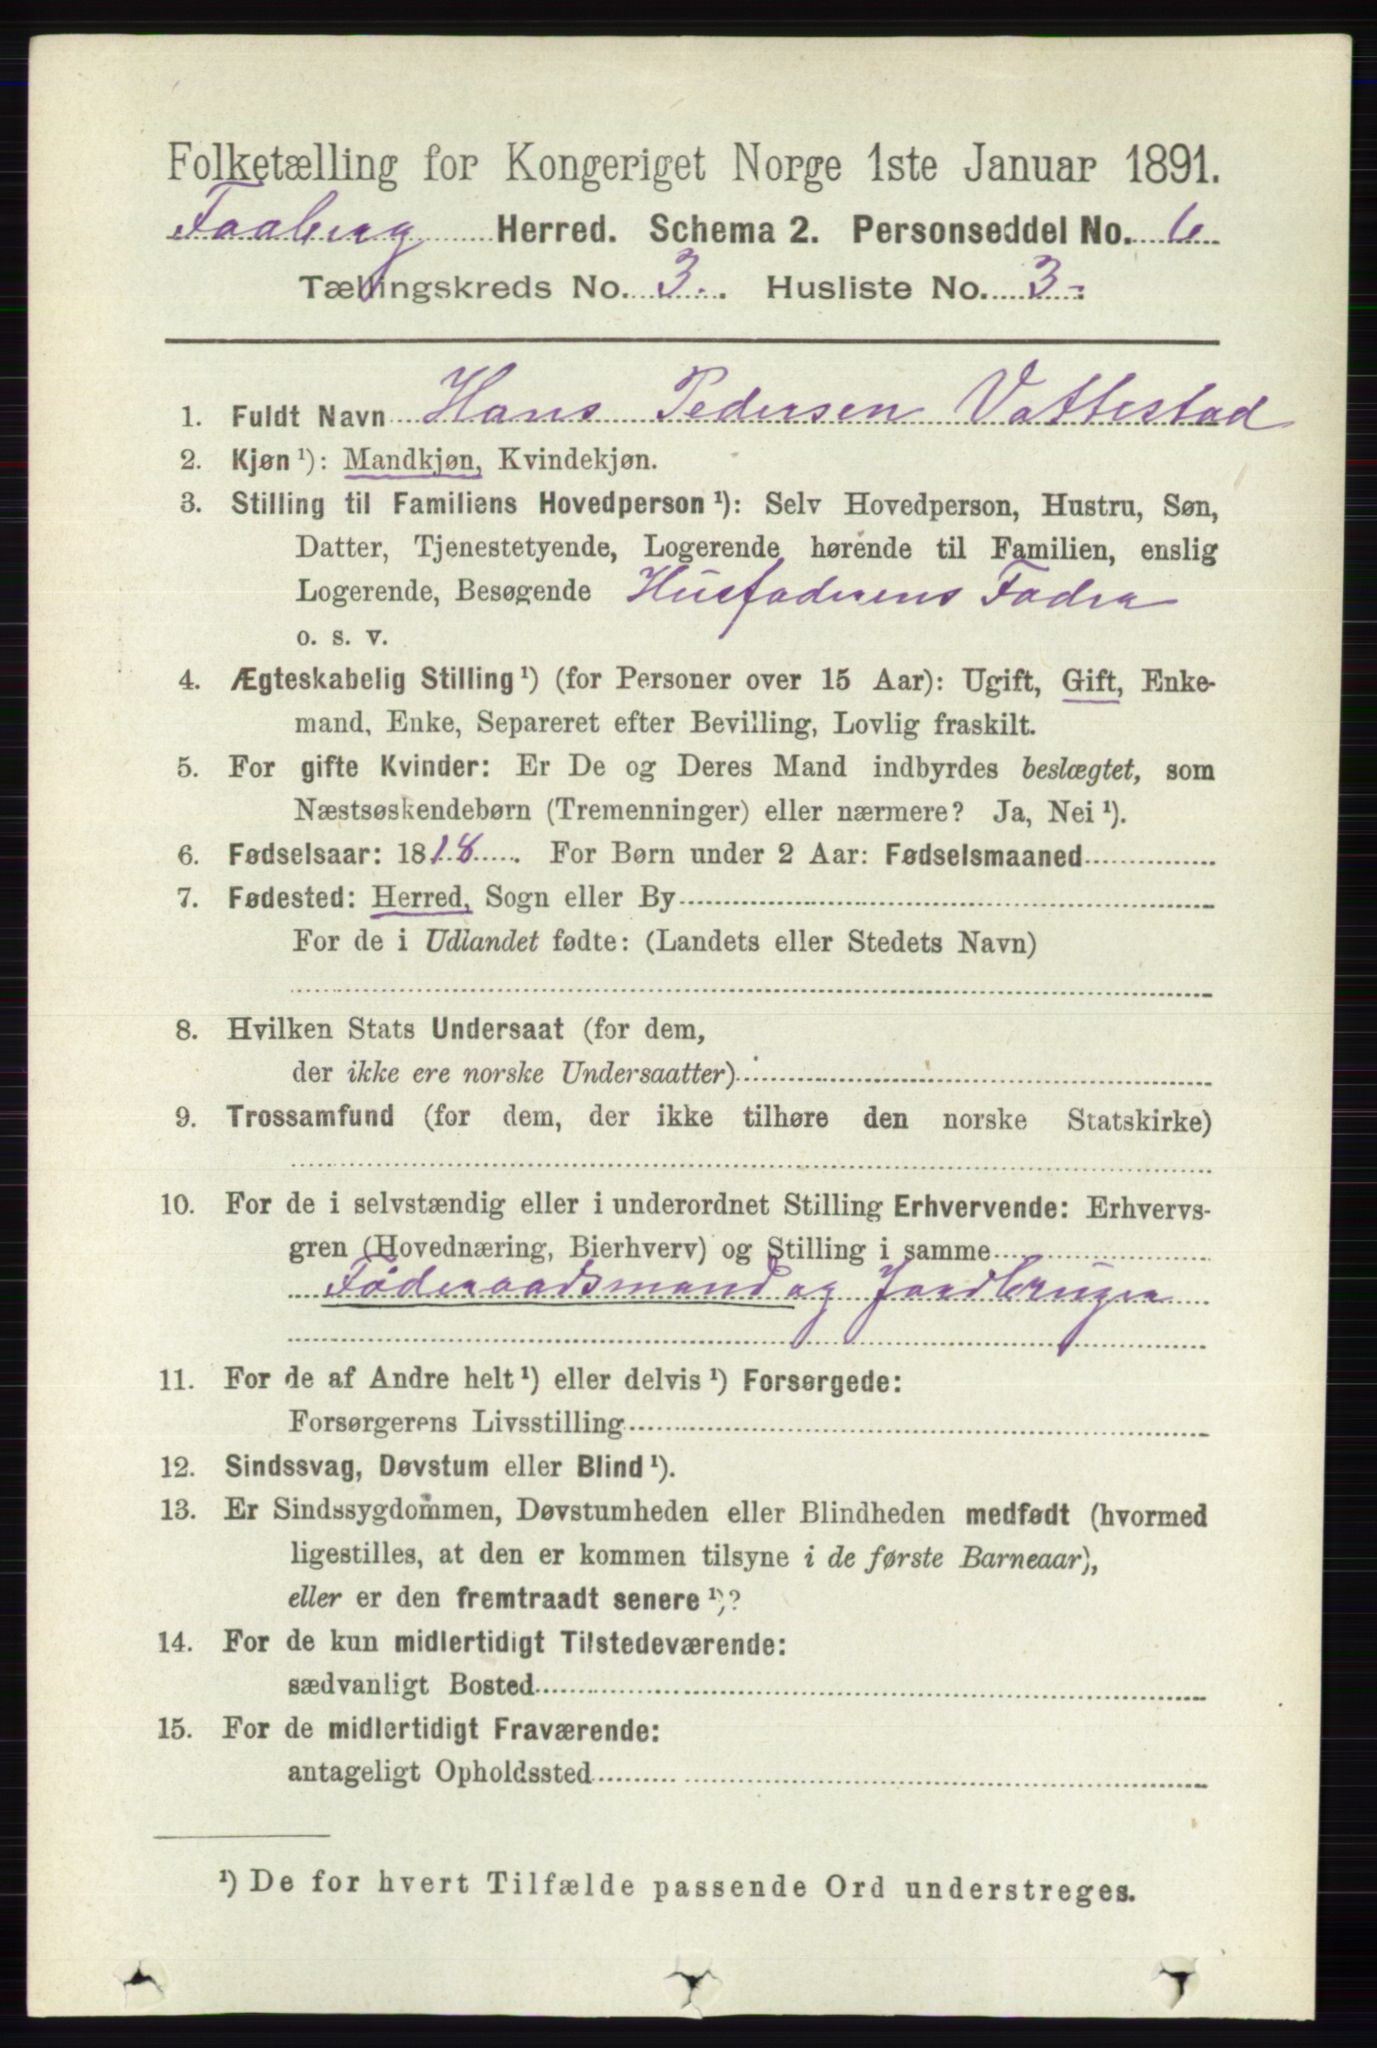 Folketælling for Kongeriget Norge 1ste Januar 1891.
Faaberg Herred. Schema 2. Personseddel No. 6
Tællingskreds No. 3. Husliste No. 3.
1. Fuldt Navn Hans Pedersen Vattestad
2. Kjøn ¹): Mandkjøn, Kvindekjøn.
3. Stilling til Familiens Hovedperson ¹): Selv Hovedperson, Hustru, Søn,
Datter, Tjenestetyende, Logerende hørende til Familien, enslig
Logerende, Besøgende Husfaderens Fader
o. s. v.
4. Ægteskabelig Stilling ¹) (for Personer over 15 Aar): Ugift, Gift, Enke-
mand, Enke, Separeret efter Bevilling, Lovlig fraskilt.
5. For gifte Kvinder: Er De og Deres Mand indbyrdes beslægtet, som
Næstsøskendebørn (Tremenninger) eller nærmere? Ja, Nei ¹).
6. Fødselsaar: 1818. For Børn under 2 Aar: Fødselsmaaned
7. Fødested: Herred, Sogn eller By
For de i Udlandet fødte: (Landets eller Stedets Navn)
8. Hvilken Stats Undersaat (for dem,
der ikke ere norske Undersaatter)
9. Trossamfund (for dem, der ikke tilhøre den norske Statskirke)
10. For de i selvstændig eller i underordnet Stilling Erhvervende: Erhvervs-
gren (Hovednæring, Bierhverv) og Stilling i samme
Føderaadsmand og Jordbruger
11. For de af Andre helt ¹) eller delvis ¹) Forsørgede:
Forsørgerens Livsstilling
12. Sindssvag, Døvstum eller Blind ¹).
13. Er Sindssygdommen, Døvstumheden eller Blindheden medfødt (hvormed
ligestilles, at den er kommen tilsyne i de første Barneaar),
eller er den fremtraadt senere ¹)?
14. For de kun midlertidigt Tilstedeværende:
sædvanligt Bosted
15. For de midlertidigt Fraværende:
antageligt Opholdssted
¹) De for hvert Tilfælde passende Ord understreges.